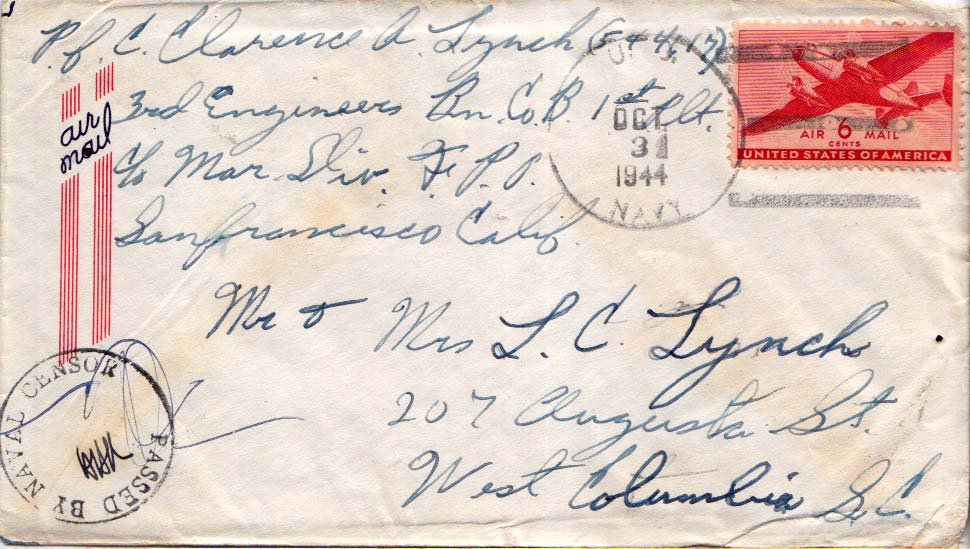 P.f.C. Clarence A Lynch
3rd Engineers Bn. Co. B. 1st Plt.
c/o Mar. Div. F. P. O.
Sanfrancisco Calif.
air
mail
U. S.
OCT
31
1944
NAVY
AIR 6 MAIL
CENTS
UNITED STATES OF AMERICA
Mr &
Mrs L. C. Lynch
207 Augusta St.
West Columbia S.C.
PASSED BY NAVAL CENSOR